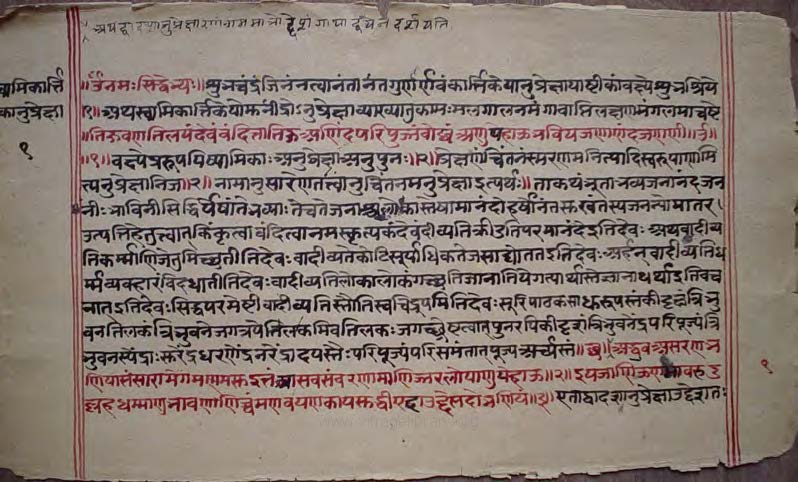 अथ द्वादशानुप्रेक्षाणां नाममात्रोद्देशं गाथाद्वयेन दर्शयति
स्वामिकार्त्ति
कानुप्रेक्षा
१
॥ॐ नमः सिद्धेभ्यः॥ शुभचंद्रं जिनं नत्वानंतानंतगुणार्णवं कार्त्तिकेयानुप्रेक्षायाष्टीकां वक्ष्ये शुभश्रिये
१॥ अथ स्वामिकार्त्तिकेयो मुनींद्रोऽनुप्रेक्षा व्याख्यातुकामः मलगालनमंगावाप्तिलक्षणं मंगलमाचष्टे
॥तिहुवणतिलयं देवं वंदित्ता तिहुअणिंदपरिपुज्जं वोच्छं अणुपेहाऊ भवियजणाणंदजणणीउ॥
॥१॥ वक्ष्ये प्ररूपयिष्यामि काः अनुप्रेक्षाः अनुपुनः॥२॥ प्रेक्षणं चिंतनं स्मरणमनित्यादिस्वरूपाणामि
त्यनुप्रेक्षा निजा॥२॥ नामानुसारेण तत्त्वानुचिंतनमनुप्रेक्षा इत्यर्थः॥ ता कथंभूताः भव्यजनानंदजन
नीः भाविनी सिद्धिर्येषां ते भव्याः ते च ते जनाश्च लोकास्तेषामानंदो हर्षोनंतसुखं तस्य जनन्यो मातरः।
उत्पत्तिहेतुत्वात् किंकृत्वा वंदित्वा नमस्कृत्य कं देवं दीव्यति क्रीडति परमानंदे इति देवः अथवा दीव्य
ति कर्माणि जेतुमिच्छतीति देवः वा दीव्यते कोटिसूर्याधिकतेजसा द्योतत इति देवः अर्हन् वा दीव्यति ध
र्म्मव्यवहारं विदधातीति देवः वा दीव्यति लोकालोकं गच्छति जानाति ये गत्यर्थास्ते ज्ञानार्था इति वच
नात् इति देवः सिद्धपरमेष्टी वा दीव्यति स्तौति स्वचिद्रूपमिति देवः सूरिपाठकसाधुरूपस्तं कीदृशं त्रिभु
वनतिलकं त्रिभुवने जगत्त्रये तिलकमिव तिलकः जगच्छ्रेष्टत्वात् पुनरपि कीदृशं त्रिभुवनेंद्रपरिपूज्यं त्रि
भुवनस्येंद्राः सुरेंद्रधरणेंद्रनरेंद्रादयस्तैः परिपूज्यं परि समंतात् पूज्य अर्च्यस्तं॥छ॥ अद्धुव असरण भ
णिया संसारामेगमण्णमसुइत्तं आसवसंवरणामा णिज्जरलोयाणुपेहाऊ॥२॥ इय जाणिऊण भावह दु
ल्लह धम्माणुभावणा णिच्चं मणवयणकायसुद्धी एदा उद्देसदा भणियं॥३॥ एता द्वादशानुप्रेक्षा उद्देशतः
१